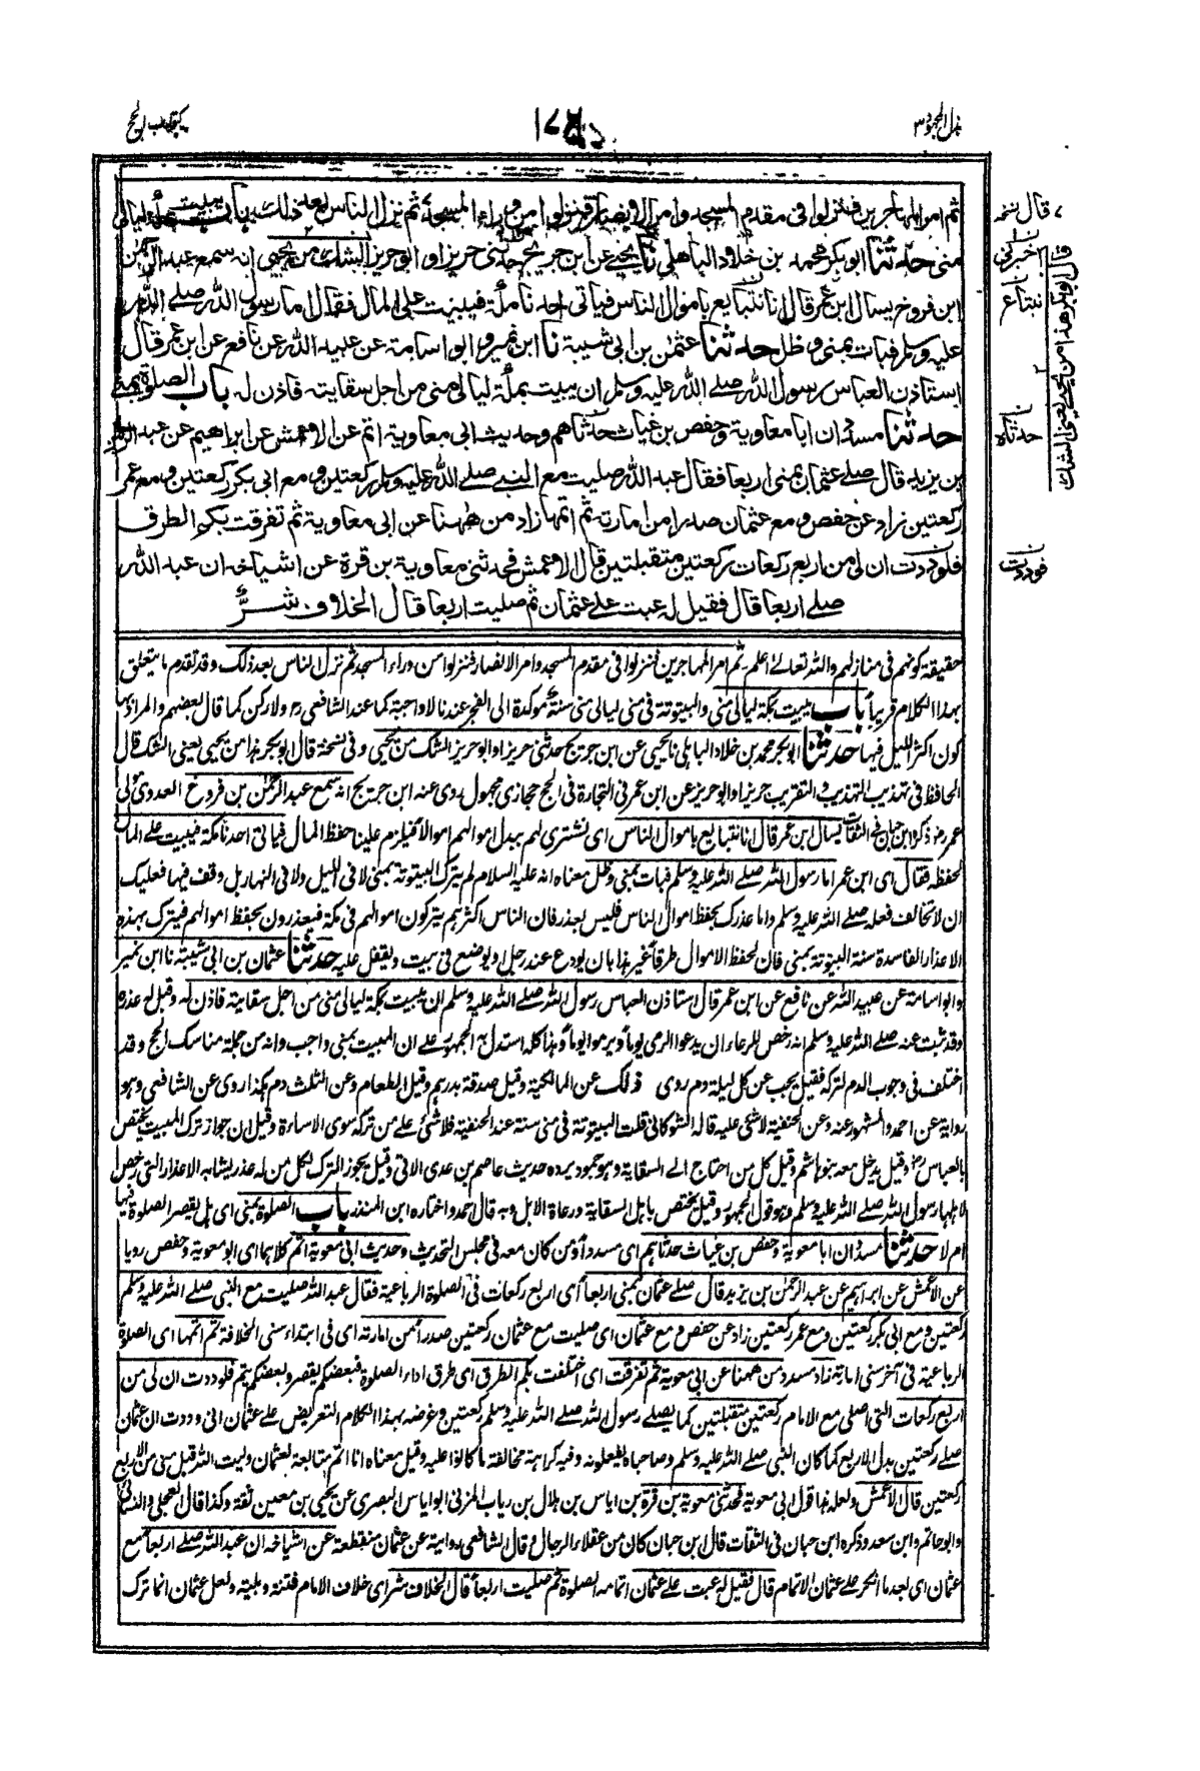 بذل المجهود ٣
١٧٥
كتاب الحج
ثم امر المهاجرين فنزلوا في مقدم المسجد وامر الانصار فنزلوا من وراء المسجد ثم نزل الناس بعد ذلك باب يبيت بمكة ليالي
منى حدثنا ابو بكر محمد بن خلاد الباهلي نا يحيى عن ابن جريج حدثني حريز او ابو حريز الشك من يحيى انه سمع عبد الرحمن
ابن فروخ يسال ابن عمر قال انا نتبايع باموال الناس فياتي احدنا مكة فيبيت على المال فقال اما رسول الله صلى الله
عليه وسلم فبات بمنى وظل حدثنا عثمن بن ابي شيبة نا ابن نمير وابو اسامة عن عبيد الله عن نافع عن ابن عمر قال
استاذن العباس رسول الله صلى الله عليه وسلم ان يبيت بمكة ليالي منى من اجل سقايته فاذن له باب الصلوة بمنى
حدثنا مسدد ان ابا معاوية وحفص بن غياث حدثاهم وحديث ابي معاوية اتم عن الاعمش عن ابراهيم عن عبد الرحمن
بن يزيد قال صلى عثمان بمنى اربعا فقال عبد الله صليت مع النبي صلى الله عليه وسلم ركعتين ومع ابي بكر ركعتين ومع عمر
ركعتين زاد عن حفص ومع عثمان صدرا من امارته ثم اتمها زاد من ههنا عن ابي معاوية ثم تفرقت بكم الطرق
فلوددت ان لي من اربع ركعات ركعتين متقبلتين قال الاعمش فحدثني معاوية بن قرة عن اشياخه ان عبد الله
صلى اربعا قال فقيل له عبت على عثمان ثم صليت اربعا قال الخلاف شر
قال ابو بكر هذا من يحيى يعني الشك
اخبرني
نبتاع
حدثاه
فوددت
حقيقة كونهم في منازلهم والله تعالى اعلم ثم امر المهاجرين فنزلوا في مقدم المسجد وامر الانصار فنزلوا من وراء المسجد ثم نزل الناس بعد ذلك وقد تقدم ما يتعلق
بهذا الكلام قريبا باب يبيت بمكة ليالي منى والبيتوتة في منى ليالي منى سنة مؤكدة الى الفجر عندنا لا واجبة كما عند الشافعي رح ولا ركن كما قال بعضهم والمراد بها
كون اكثر الليل فيها حدثنا ابو بكر محمد بن خلاد الباهلي نا يحيى عن ابن جريج حدثني حريز او ابو حريز الشك من يحيى وفي نسخة قال ابو بكر هذا من يحيى يعني الشك قال
الحافظ في تهذيب التهذيب وفي التقريب حريز او ابو حريز عن ابن عمر في التجارة في الحج حجازي مجهول روى عنه ابن جريج انه سمع عبد الرحمن بن فروخ العدوي مولى
عمر رض ذكره ابن حبان في الثقات يسال ابن عمر قال انا نتبايع باموال الناس اي نشتري لهم ببدل اموالهم اموالا فيلزم علينا حفظ المال فياتي احدنا مكة فيبيت على المال
لحفظه فقال اي ابن عمر اما رسول الله صلى الله عليه وسلم فبات بمنى وظل معناه انه عليه السلام لم يترك البيتوتة بمنى لا في الليل ولا في النهار بل وقف فيها فعليك
ان لا تخالف فعله صلى الله عليه وسلم واما عذرك بحفظ اموال الناس فليس بعذر فان الناس اكثرهم يتركون اموالهم في مكة فيعذرون بحفظ اموالهم فيترك بهذه
الاعذار الفاسدة سنة البيتوتة بمنى فان لحفظ الاموال طرقا غير هذا بان يودع عند رجل او يوضع في بيت ويقفل عليه حدثنا عثمان بن ابي شيبة نا ابن نمير
وابو اسامة عن عبيد الله عن نافع عن ابن عمر قال استاذن العباس رسول الله صلى الله عليه وسلم ان يبيت بمكة ليالي منى من اجل سقايته فاذن له وقبل له عذره
وقد ثبت عنه صلى الله عليه وسلم انه رخص للرعاء ان يدعوا الرمي يوما ويرموا يوما وهذا كله استدل به الجمهور على ان المبيت بمنى واجب وانه من جملة مناسك الحج وقد
اختلف في وجوب الدم لتركه فقيل يجب عن كل ليلة دم روى ذلك عن المالكية وقيل صدقة بدرهم وقيل اطعام وعن الثلث دم هكذا روى عن الشافعي وهو
رواية عن احمد والمشهور عنه وعن الحنفية لا شيء عليه قاله الشوكاني قلت البيتوتة في منى سنة عند الحنفية فلا شيء على من تركه سوى الاساءة وقيل ان جواز ترك المبيت يختص
بالعباس رض وقيل يدخل معه بنو هاشم وقيل كل من احتاج الى السقاية وهو جمود يرده حديث عاصم بن عدي الاتي وقيل يجوز الترك لكل من له عذر يشابه الاعذار التي رخص
لاهلها رسول الله صلى الله عليه وسلم وهو قول الجمهور وقيل يختص باهل السقاية ورعاة الابل وبه قال احمد واختاره ابن المنذر باب الصلوة بمنى اي هل يقصر الصلوة فيها
ام لا حدثنا مسدد ان ابا معوية وحفص بن غياث حدثاهم اي مسددا ومن كان معه في مجلس التحديث وحديث ابي معوية اتم كلاهما اي ابو معوية وحفص رويا
عن الاعمش عن ابراهيم عن عبد الرحمن بن يزيد قال صلى عثمان بمنى اربعا اي اربع ركعات في الصلوة الرباعية فقال عبد الله صليت مع النبي صلى الله عليه وسلم
ركعتين ومع ابي بكر ركعتين ومع عمر ركعتين زاد عن حفص ومع عثمان اي صليت مع عثمان ركعتين صدرا من امارته اي في ابتداء سني الخلافة ثم اتمها اي الصلوة
الرباعية في آخر سني امارته زاد مسدد من ههنا عن ابي معوية ثم تفرقت اي اختلفت بكم الطرق اي طرق اداء الصلوة فبعضكم يقصر وبعضكم يتم فلوددت ان لي من
اربع ركعات التي اصلي مع الامام ركعتين متقبلتين كما يصلي رسول الله صلى الله عليه وسلم ركعتين وغرضه بهذا الكلام التعريض على عثمان اني وددت ان عثمان
صلى ركعتين بدل الاربع كما كان النبي صلى الله عليه وسلم وصاحباه يفعلونه وفيه كراهة مخالفة ما كانوا عليه وقيل معناه انا اتم متابعة لعثمان وليت الله قبل مني من الاربع
ركعتين قال الاعمش ولعله هذا قول ابي معوية فحدثني معوية بن قرة بن اياس بن هلال بن رياب المزني ابو اياس البصري عن يحيى بن معين ثقة وكذا قال العجلي والنسائي
وابو حاتم وابن سعد وذكره ابن حبان في الثقات قال ابن حبان كان من عقلاء الرجال وقال الشافعي روايته عن عثمان منقطعة عن اشياخه ان عبد الله صلى اربعا مع
عثمان اي بعد ما انكر على عثمان الاتمام قال فقيل له عبت على عثمان اتمامه الصلوة ثم صليت اربعا قال الخلاف شر اي خلاف الامام فتنة وبلية ولعل عثمان انما ترك